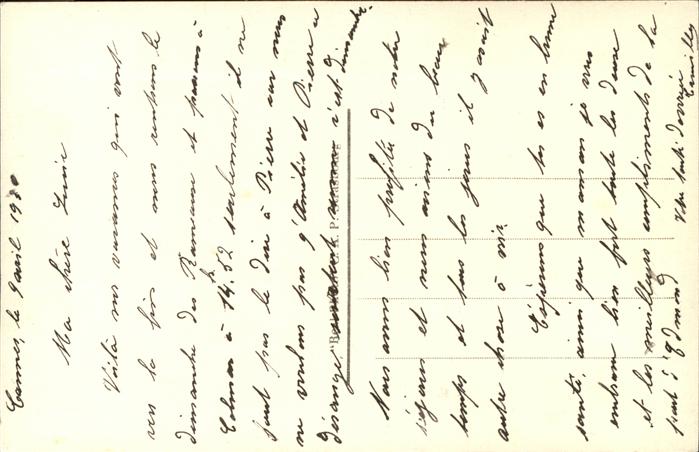 Cannes, le 9 avril 1930
Ma chère
Voilà nos vacances qui vont
vers la fin et nous rentrons le
dimanche des Rameaux et passons à
Colmar à 14.52 seulement il ne
faut pas le dire à Pierre car nous
ne voulons pas q'Amélie et Pierre se
dérange c'est Dimanche.
Nous avons bien profité de notre
séjour et nous avions du beau
temps et tous les jours il y avait
autre chose à voir.
Espérons que tu es en bonne
santé, ainsi que maman je vous
embrasse bien fort toute les deux
et les meilleurs compliments de la
part d'Edmond
Votre tante